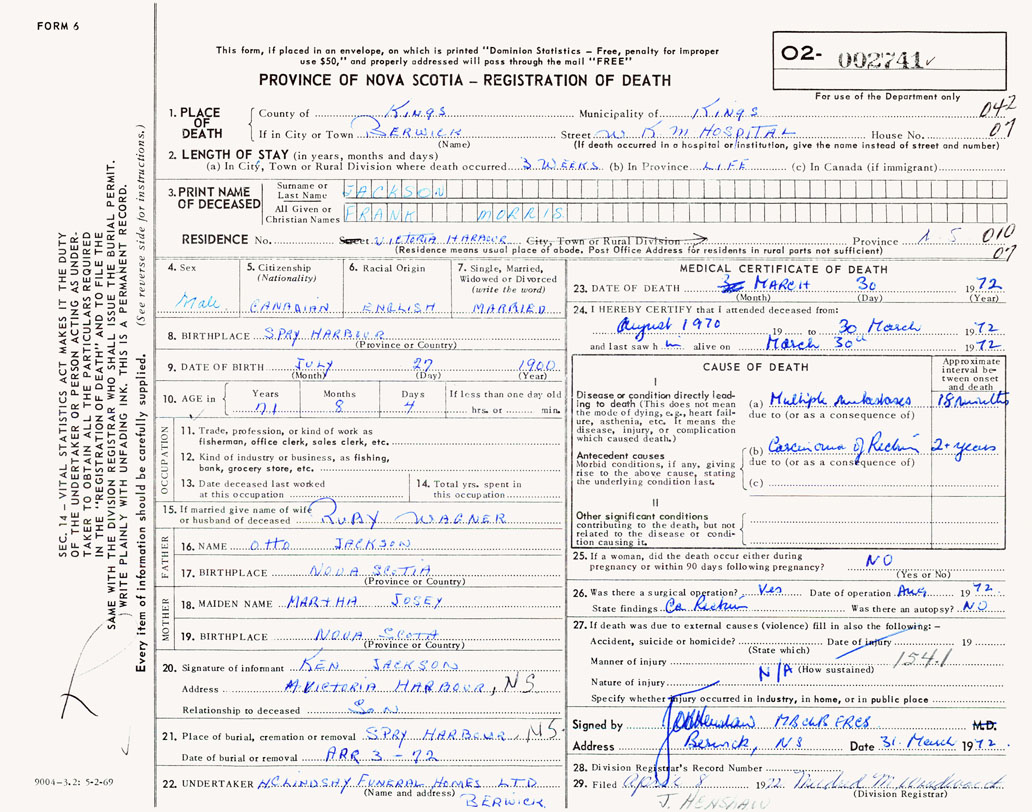 FORM 6
This form, if placed in an envelope, on which is printed "Dominion Statistics – Free, penalty for improper
use $50," and properly addressed will pass through the mail "FREE"
PROVINCE OF NOVA SCOTIA – REGISTRATION OF DEATH
O2- 002741
For use of the Department only
042
07
1. PLACE OF DEATH
County of KINGS Municipality of KINGS
If in City or Town BERWICK Street W K M HOSPITAL House No.
(Name) (If death occurred in a hospital or institution, give the name instead of street and number)
2. LENGTH OF STAY (in years, months and days)
(a) In City, Town or Rural Division where death occurred 3 WEEKS (b) In Province LIFE (c) In Canada (if immigrant)
3. PRINT NAME OF DECEASED
Surname or Last Name JACKSON
All Given or Christian Names FRANK MORRIS
RESIDENCE No. Street VICTORIA HARBOUR City, Town or Rural Division Province N.S 010
07
(Residence means usual place of abode. Post Office Address for residents in rural parts not sufficient)
4. Sex
Male
5. Citizenship
(Nationality)
CANADIAN
6. Racial Origin
ENGLISH
7. Single, Married,
Widowed or Divorced
(write the word)
MARRIED
8. BIRTHPLACE SPRY HARBOUR
(Province or Country)
9. DATE OF BIRTH JULY 27 1900
(Month) (Day) (Year)
10. AGE in Years Months Days If less than one day old
71 8 4 hrs. or min.
OCCUPATION
11. Trade, profession, or kind of work as
fisherman, office clerk, sales clerk, etc.
12. Kind of industry or business, as fishing,
bank, grocery store, etc.
13. Date deceased last worked
at this occupation
14. Total yrs. spent in
this occupation
15. If married give name of wife
or husband of deceased RUBY WAGNER
FATHER
16. NAME OTTO JACKSON
17. BIRTHPLACE NOVA SCOTIA
(Province or Country)
MOTHER
18. MAIDEN NAME MARTHA JOSEY
19. BIRTHPLACE NOVA SCOTA
(Province or Country)
20. Signature of informant KEN JACKSON
Address VICTORIA HARBOUR, NS
Relationship to deceased SON
21. Place of burial, cremation or removal SPRY HARBOUR, NS.
Date of burial or removal APR 3 - 72
22. UNDERTAKER H C LINDSAY FUNERAL HOMES LTD
(Name and address) BERWICK
MEDICAL CERTIFICATE OF DEATH
23. DATE OF DEATH MARCH 30 1972
(Month) (Day) (Year)
24. I HEREBY CERTIFY that I attended deceased from:
August 1970 19 to 30 March 1972
and last saw h im alive on March 30th 1972
CAUSE OF DEATH
Approximate
interval be-
tween onset
and death
I
Disease or condition directly lead-
ing to death (This does not mean
the mode of dying, e.g., heart fail-
ure, asthenia, etc. It means the
disease, injury, or complication
which caused death.)
(a) Multiple metastases 18 months
due to (or as a consequence of)
Antecedent causes
Morbid conditions, if any, giving
rise to the above cause, stating
the underlying condition last.
(b) Carcinoma of Rectum 2+ years
due to (or as a consequence of)
(c)
II
Other significant conditions
contributing to the death, but not
related to the disease or condi-
tion causing it.
25. If a woman, did the death occur either during
pregnancy or within 90 days following pregnancy? NO
(Yes or No)
26. Was there a surgical operation? Yes Date of operation Aug. 1972
State findings Ca Rectum Was there an autopsy? NO
27. If death was due to external causes (violence) fill in also the following:–
Accident, suicide or homicide? Date of injury 19
(State which)
Manner of injury 154.1
N/A (How sustained)
Nature of injury
Specify whether injury occurred in industry, in home, or in public place
Signed by Henshaw MBChB FRCS M.D.
Address Berwick, NS Date 31 March 1972
28. Division Registrar's Record Number
29. Filed April 8 1972
(Division Registrar)
J. HENSHAW
SEC. 14 – VITAL STATISTICS ACT MAKES IT THE DUTY
OF THE UNDERTAKER OR PERSON ACTING AS UNDER-
TAKER TO OBTAIN ALL THE PARTICULARS REQUIRED
IN THE "REGISTRATION OF DEATH" AND TO FILE THE
SAME WITH THE DIVISION REGISTRAR WHO SHALL ISSUE THE BURIAL PERMIT.
WRITE PLAINLY WITH UNFADING INK. THIS IS A PERMANENT RECORD.
Every item of information should be carefully supplied. (See reverse side for instructions.)
9004-3.2: 5-2-69